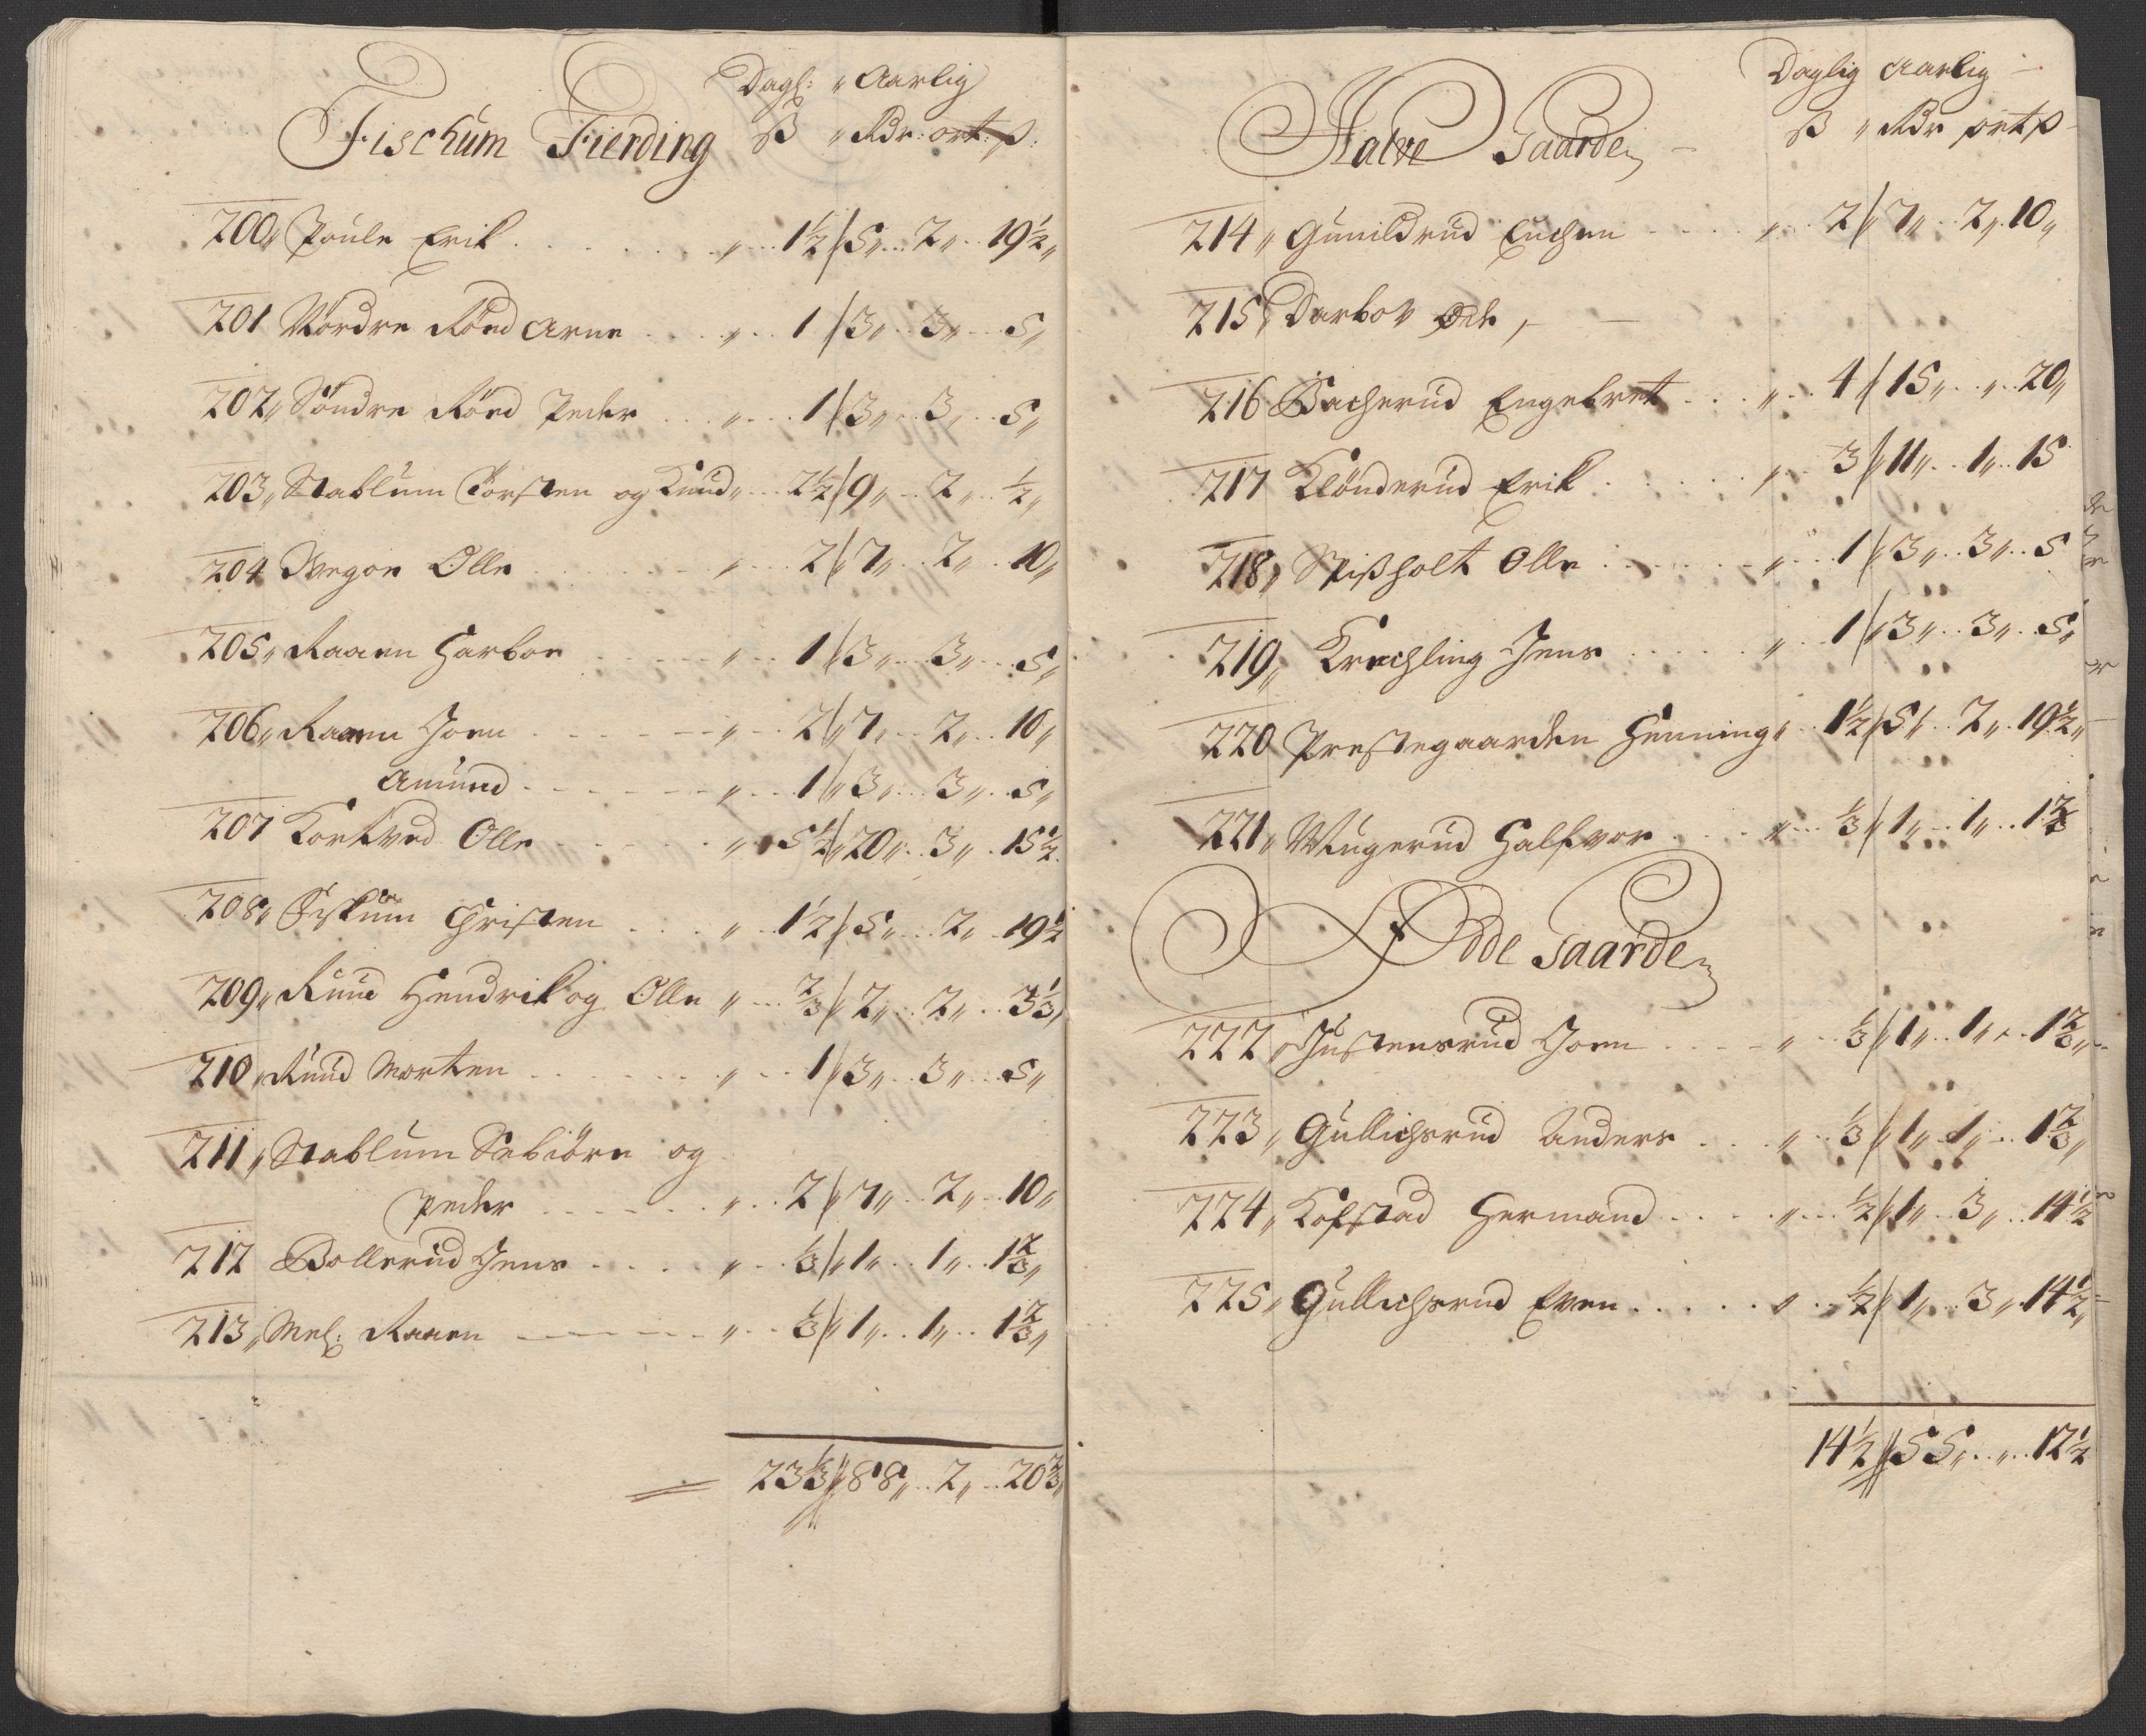 Dagl: „ Aarlig
Fischum Fierding ß „ Rdr: ort: ß:
200„ Poule Erik . . . „ .. 1½ // 5„ .. 2„ .. 19½„
201 Nordre Röed Arne . . . „ .. 1 // 3„ .. 3„ .. 5„
202„ Söndre Röed Peder . . . „ .. 1 // 3„ .. 3„ .. 5„
203„ Stablum Torsten og Knud„ .. 2½ // 9„ .. 2„ .. ½„
204 Wegor Olle . . . „ .. 2 // 7„ .. 2„ .. 10„
205„ Raaen Harbor . . . „ .. 1 // 3„ .. 3„ .. 5„
206„ Raaen Joen . . . „ .. 2 // 7„ .. 2„ .. 10„
Amund . . . „ .. 1 // 3„ .. 3„ .. 5„
207 Kortved Olle . . . „ 5½ // 20„ .. 3„ .. 15½
208„ Fiskum Christen . . . „ .. 1½ // 5„ .. 2„ .. 19½
209„ Ruud Hendrik og Olle „ .. ⅔ // 2„ .. 2„ .. 3⅓„
210„ Ruud Morten . . . „ .. 1 // 3„ .. 3„ .. 5„
211„ Stablum Sebiörn og
Peder . . . „ .. 2 // 7„ .. 2„ .. 10„
212 Bollerud Jens . . . „ .. ⅓ // 1„ .. 1„ .. 1⅔„
213„ Mel: Raaen . . . „ .. ⅓ // 1„ .. 1„ .. 1⅔„
23⅓ // 88„ .. 2„ .. 20⅔„
Daglig Aarlig
Halve Gaarder ß „ Rdr ort ß
214„ Gunildrud . . . „ .. 2 // 7„ .. 2„ 10„
215„ Darbov Öde,
216 Bacherud Engebret . . . „ .. 4 // 15„ .. „ .. 20„
217 Klönderud Erik . . . „ .. 3 // 11„ .. 1„ .. 15
218„ Spißholt Olle . . . „ .. 1 // 3„ .. 3„ .. 5
219„ Krechling Jens . . . „ .. 1 // 3„ .. 3„ .. 5„
220 Prestegaarden Henning„ .. 1½ // 5„ .. 2„ .. 19½„
221„ Wugerud Halfvor . . . „ .. ⅓ // 1„ .. 1„ .. 1⅔
Ödde Gaarder
222„ Justensrud Joen . . . „ .. ⅓ // 1„ .. 1„ .. 1⅔„
223„ Gullichsrud Anders . . . „ .. ⅓ // 1„ .. 1„ .. 1⅔„
224„ Kofstad Hermand . . . „ .. ½ // 1„ .. 3„ .. 14½
225„ Gullichsrud Even . . . „ .. ½ // 1„ .. 3„ .. 14½„
14½ // 55„ .. „ .. 12½